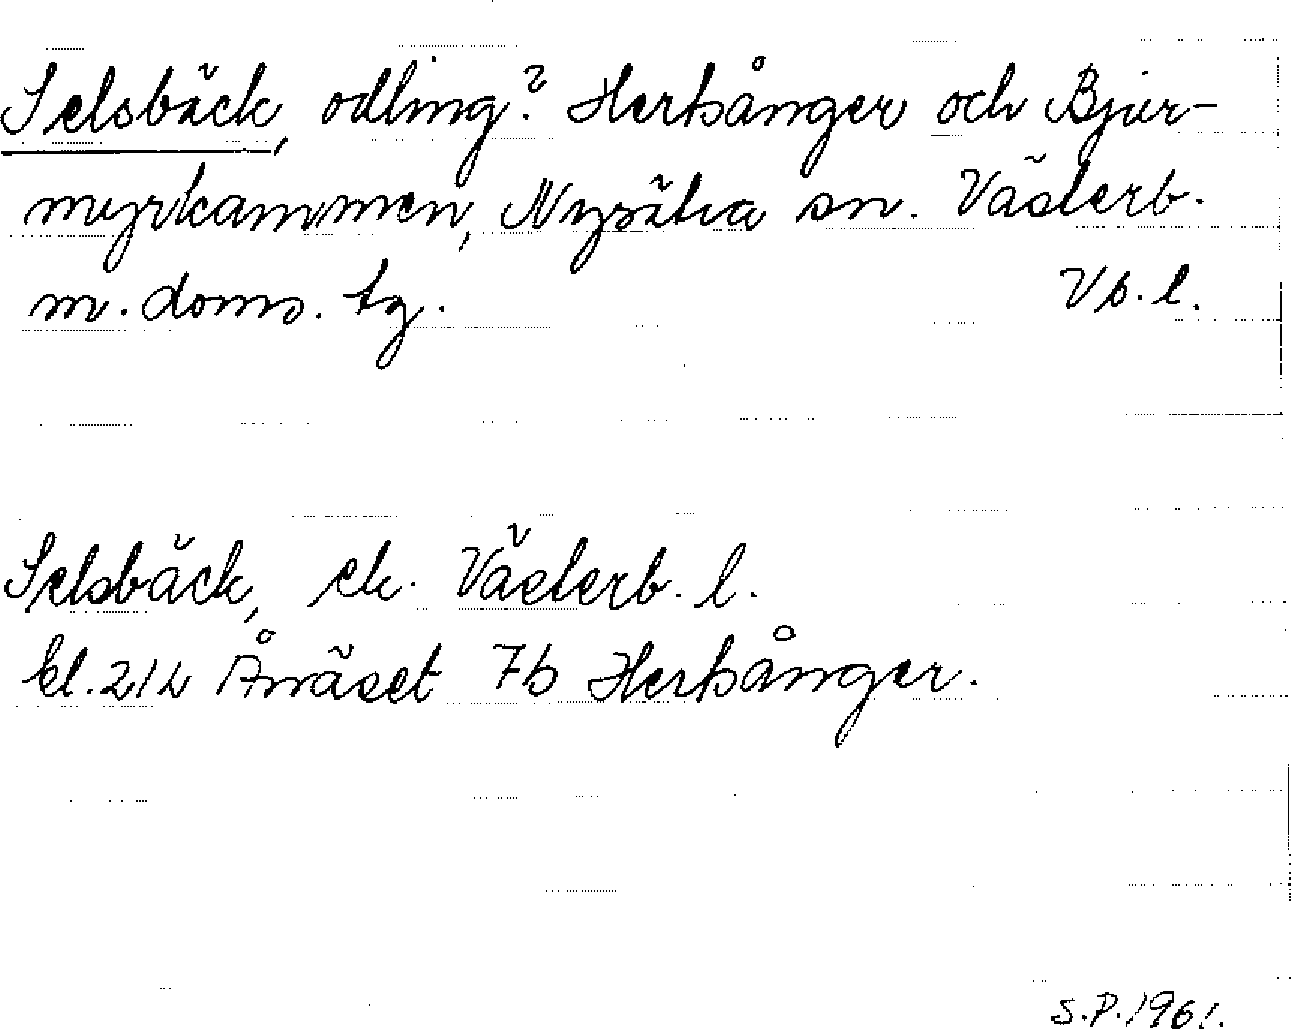 Selsbäck, odling? Hertsånger och Bjur-
myrkammen, Nysätra sn. Västerb.
m. doms. tg. Vb. l.
Selsbäck, ek. Västerb. l.
bl. 212 Ånäset 7b Hertsånger.
S.P. 1961.